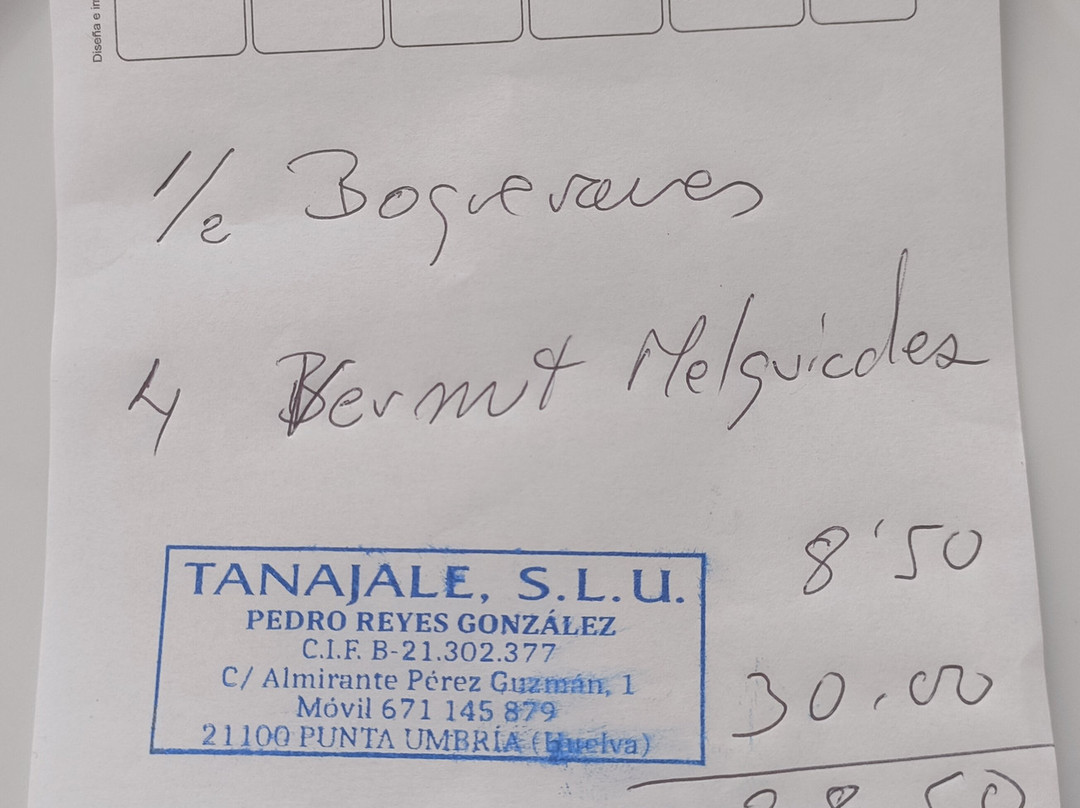 Diseña e
1/2 Boquerones
4 Vermut Melquiades
8'50
30.00
TANAJALE, S.L.U.
PEDRO REYES GONZÁLEZ
C.I.F. B-21.302.377
C/ Almirante Pérez Guzmán, 1
Móvil 671 145 879
21100 PUNTA UMBRÍA (Huelva)